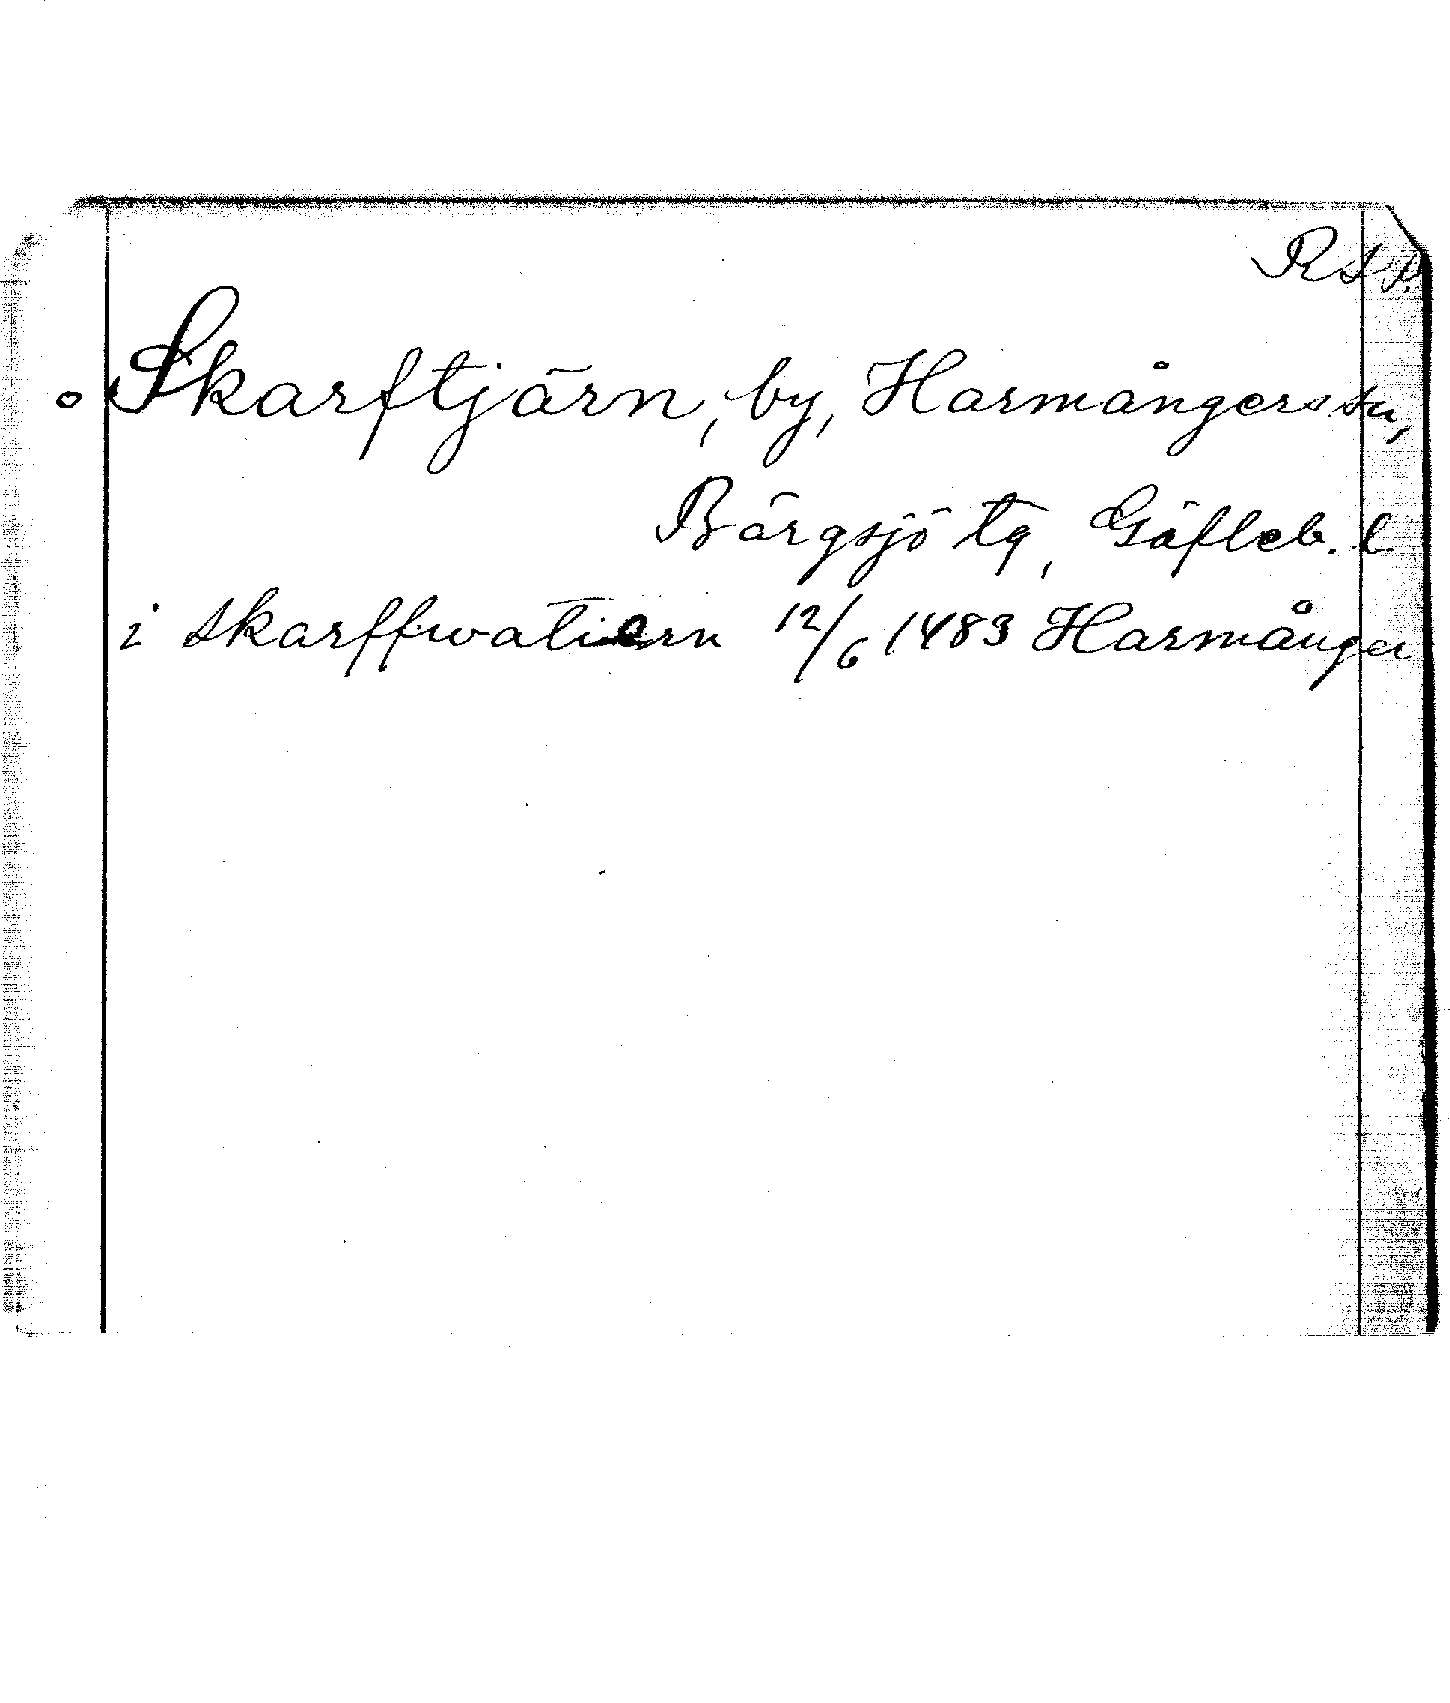 RAP.
Skarftjärn, by, Harmångers sn,
Bärgsjö tg, Gäfleb. l
i skarffwatiern 12/6 1483 Harmånger